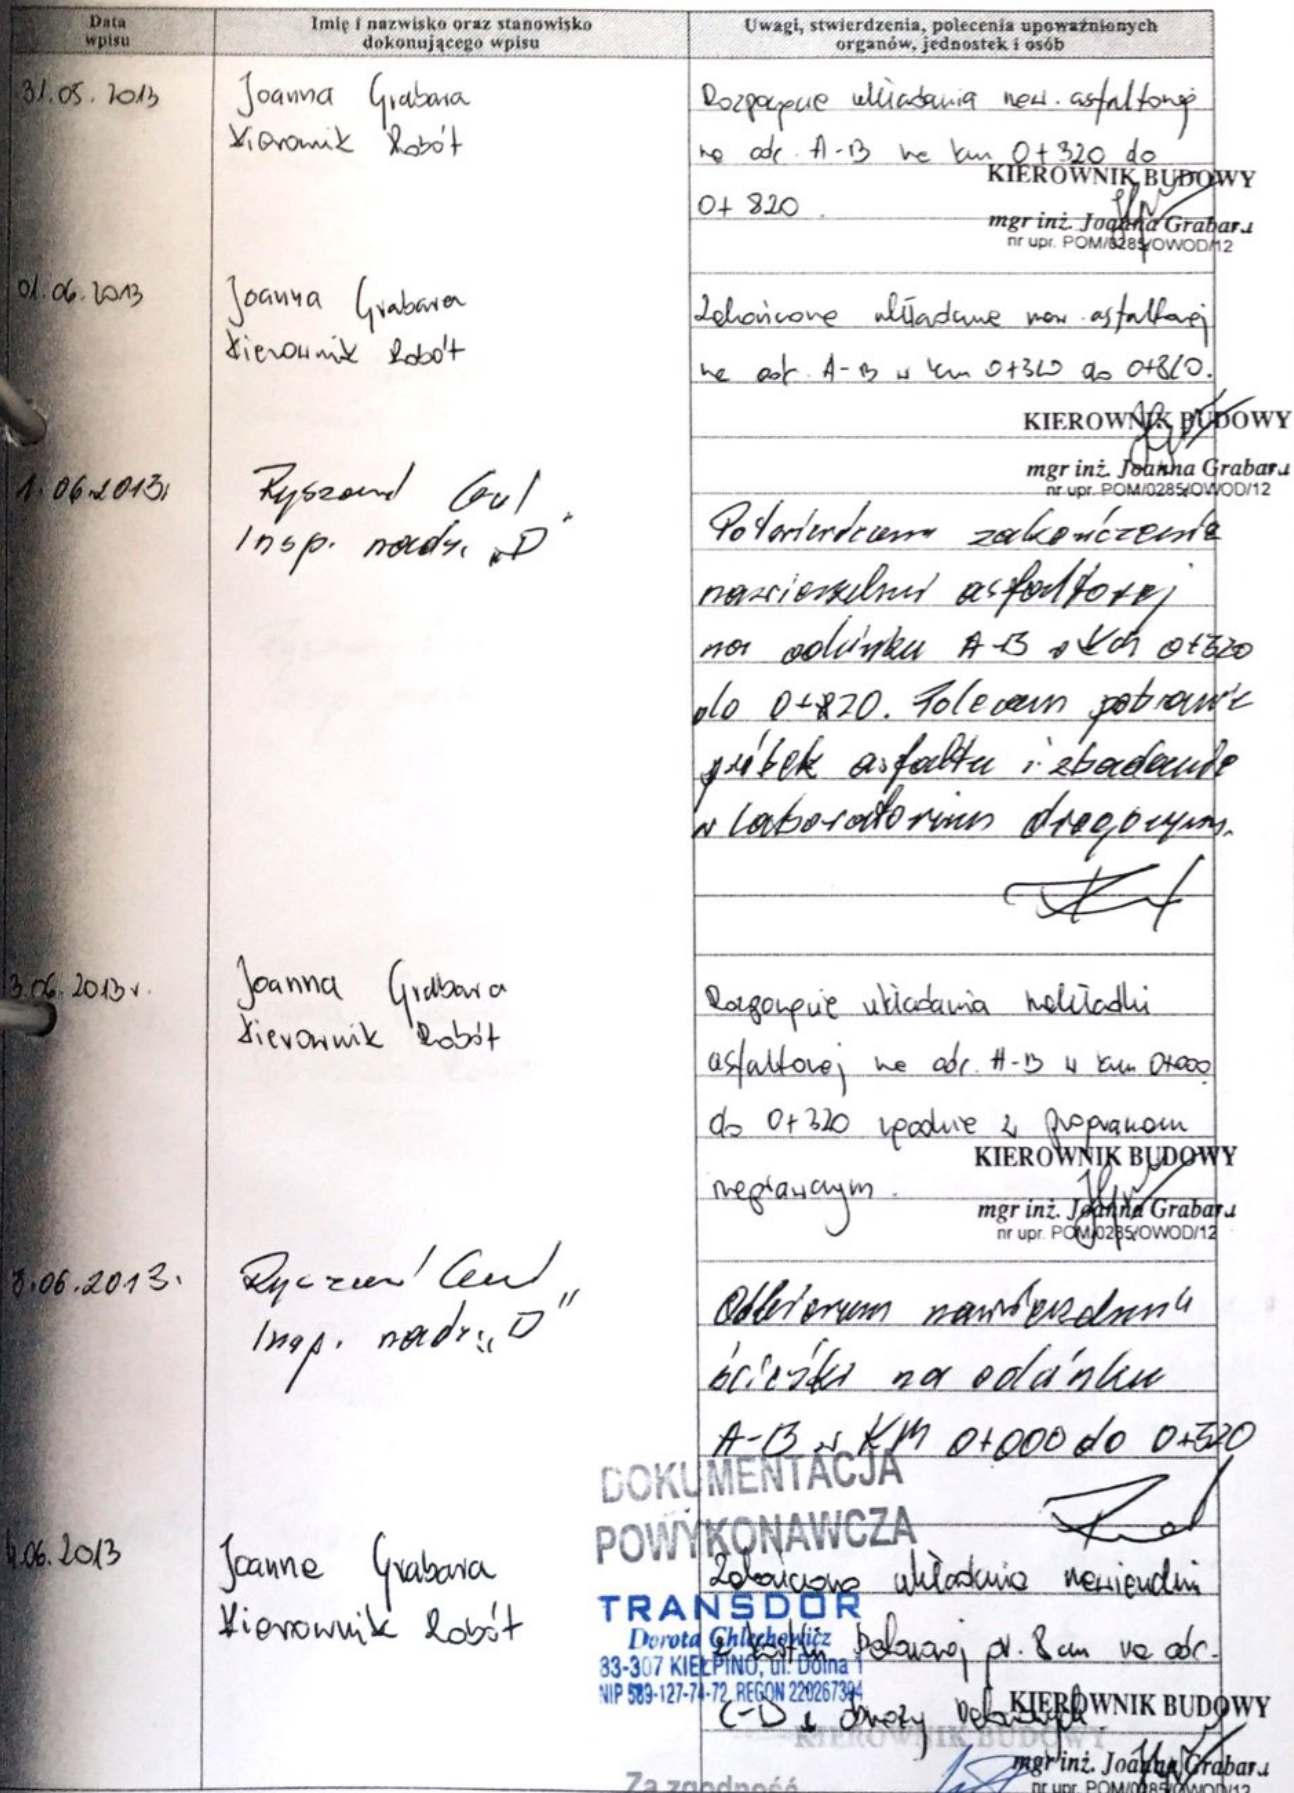 Data
wpisu
Imię i nazwisko oraz stanowisko
dokonującego wpisu
Uwagi, stwierdzenia, polecenia upoważnionych
organów, jednostek i osób
31.05.2013
Joanna Grabara
Kierownik Robót
Rozpoczęcie układania naw. asfaltowej
na odc. A-B w km 0+320 do
0+820.
KIEROWNIK BUDOWY
mgr inż. Joanna Grabara
nr upr. POM/0285/OWOD/12
01.06.2013
Joanna Grabara
Kierownik Robót
Zakończone układanie naw. asfaltowej
na odc. A-B w km 0+320 do 0+820.
KIEROWNIK BUDOWY
mgr inż. Joanna Grabara
nr upr. POM/0285/OWOD/12
1.06.2013r
Ryszard
Insp. nadz. „D”
Potwierdzam zakończenie
nawierzchni asfaltowej
na odcinku A-B w km 0+320
do 0+820. Polecam pobranie
próbek asfaltu i zbadanie
w laboratorium drogowym.
3.06.2013r.
Joanna Grabara
Kierownik Robót
Rozpoczęcie układania nakładki
asfaltowej na odc. A-B w km 0+000
do 0+320 zgodnie z programem
naprawczym.
KIEROWNIK BUDOWY
mgr inż. Joanna Grabara
nr upr. POM/0285/OWOD/12
.06.2013.
Ryszard
Insp. nadz. „D”
Odbieram nawierzchnię
ścieżki na odcinku
A-B w KM 0+000 do 0+320
DOKUMENTACJA
POWYKONAWCZA
.06.2013
Joanna Grabara
Kierownik Robót
Zakończono układanie nawierzchni
TRANSDOR
Dorota Chlechowicz
83-307 KIEŁPINO, ul. Dolna 1
NIP 589-127-74-72, REGON 220267394
z kostki betonowej gr. 8 cm na odc.
C-D
KIEROWNIK BUDOWY
KIEROWNIK BUDOWY
mgr inż. Joanna Grabara
nr upr. POM/0285/OWOD/12
Za zgodność